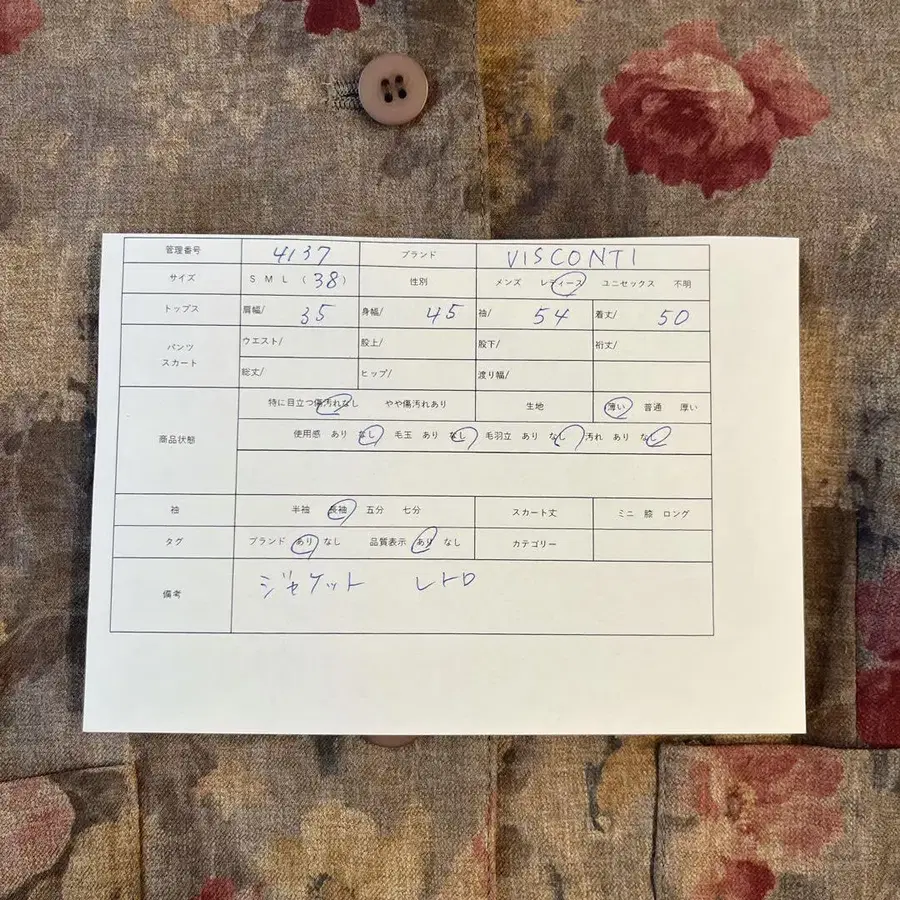 管理番号 4137 ブランド VISCONTI
サイズ S M L (38) 性別 メンズ レディース ユニセックス 不明
トップス 肩幅/ 35 身幅/ 45 袖/ 54 着丈/ 50
パンツ スカート ウエスト/ 股上/ 股下/ 裄丈/
総丈/ ヒップ/ 渡り幅/
商品状態 特に目立つ傷汚れなし やや傷汚れあり 生地 薄い 普通 厚い
使用感 あり なし 毛玉 あり なし 毛羽立 あり なし 汚れ あり なし
袖 半袖 長袖 五分 七分 スカート丈 ミニ 膝 ロング
タグ ブランド あり なし 品質表示 あり なし カテゴリー
備考 ジャケット レトロ